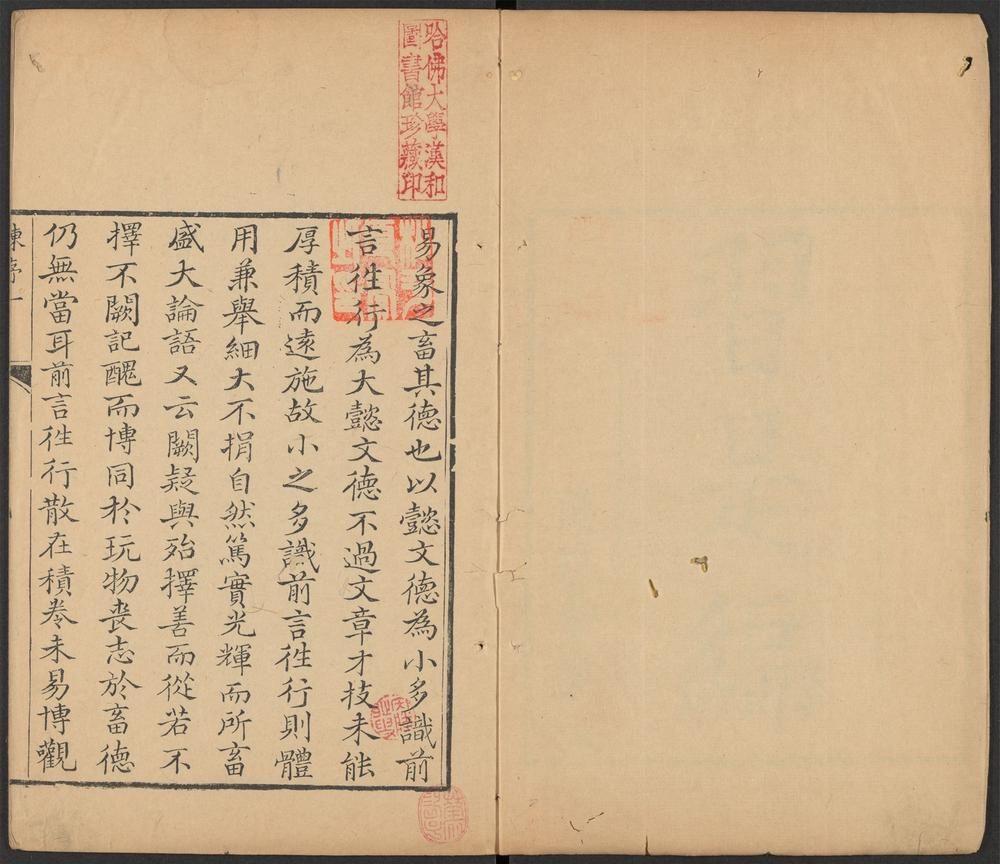 哈佛大學漢和
圖書館珍藏印
易象之畜其德也以懿文德為小多識前
言徃行為大懿文德不過文章才技未能
厚積而遠施故小之多識前言徃行則體
用兼舉細大不捐自然篤實光輝而所畜
盛大論語又云闕疑與殆擇善而從若不
擇不闕記醜而博同於玩物喪志於畜德
仍無當耳前言徃行散在積卷未易博觀
陳序一